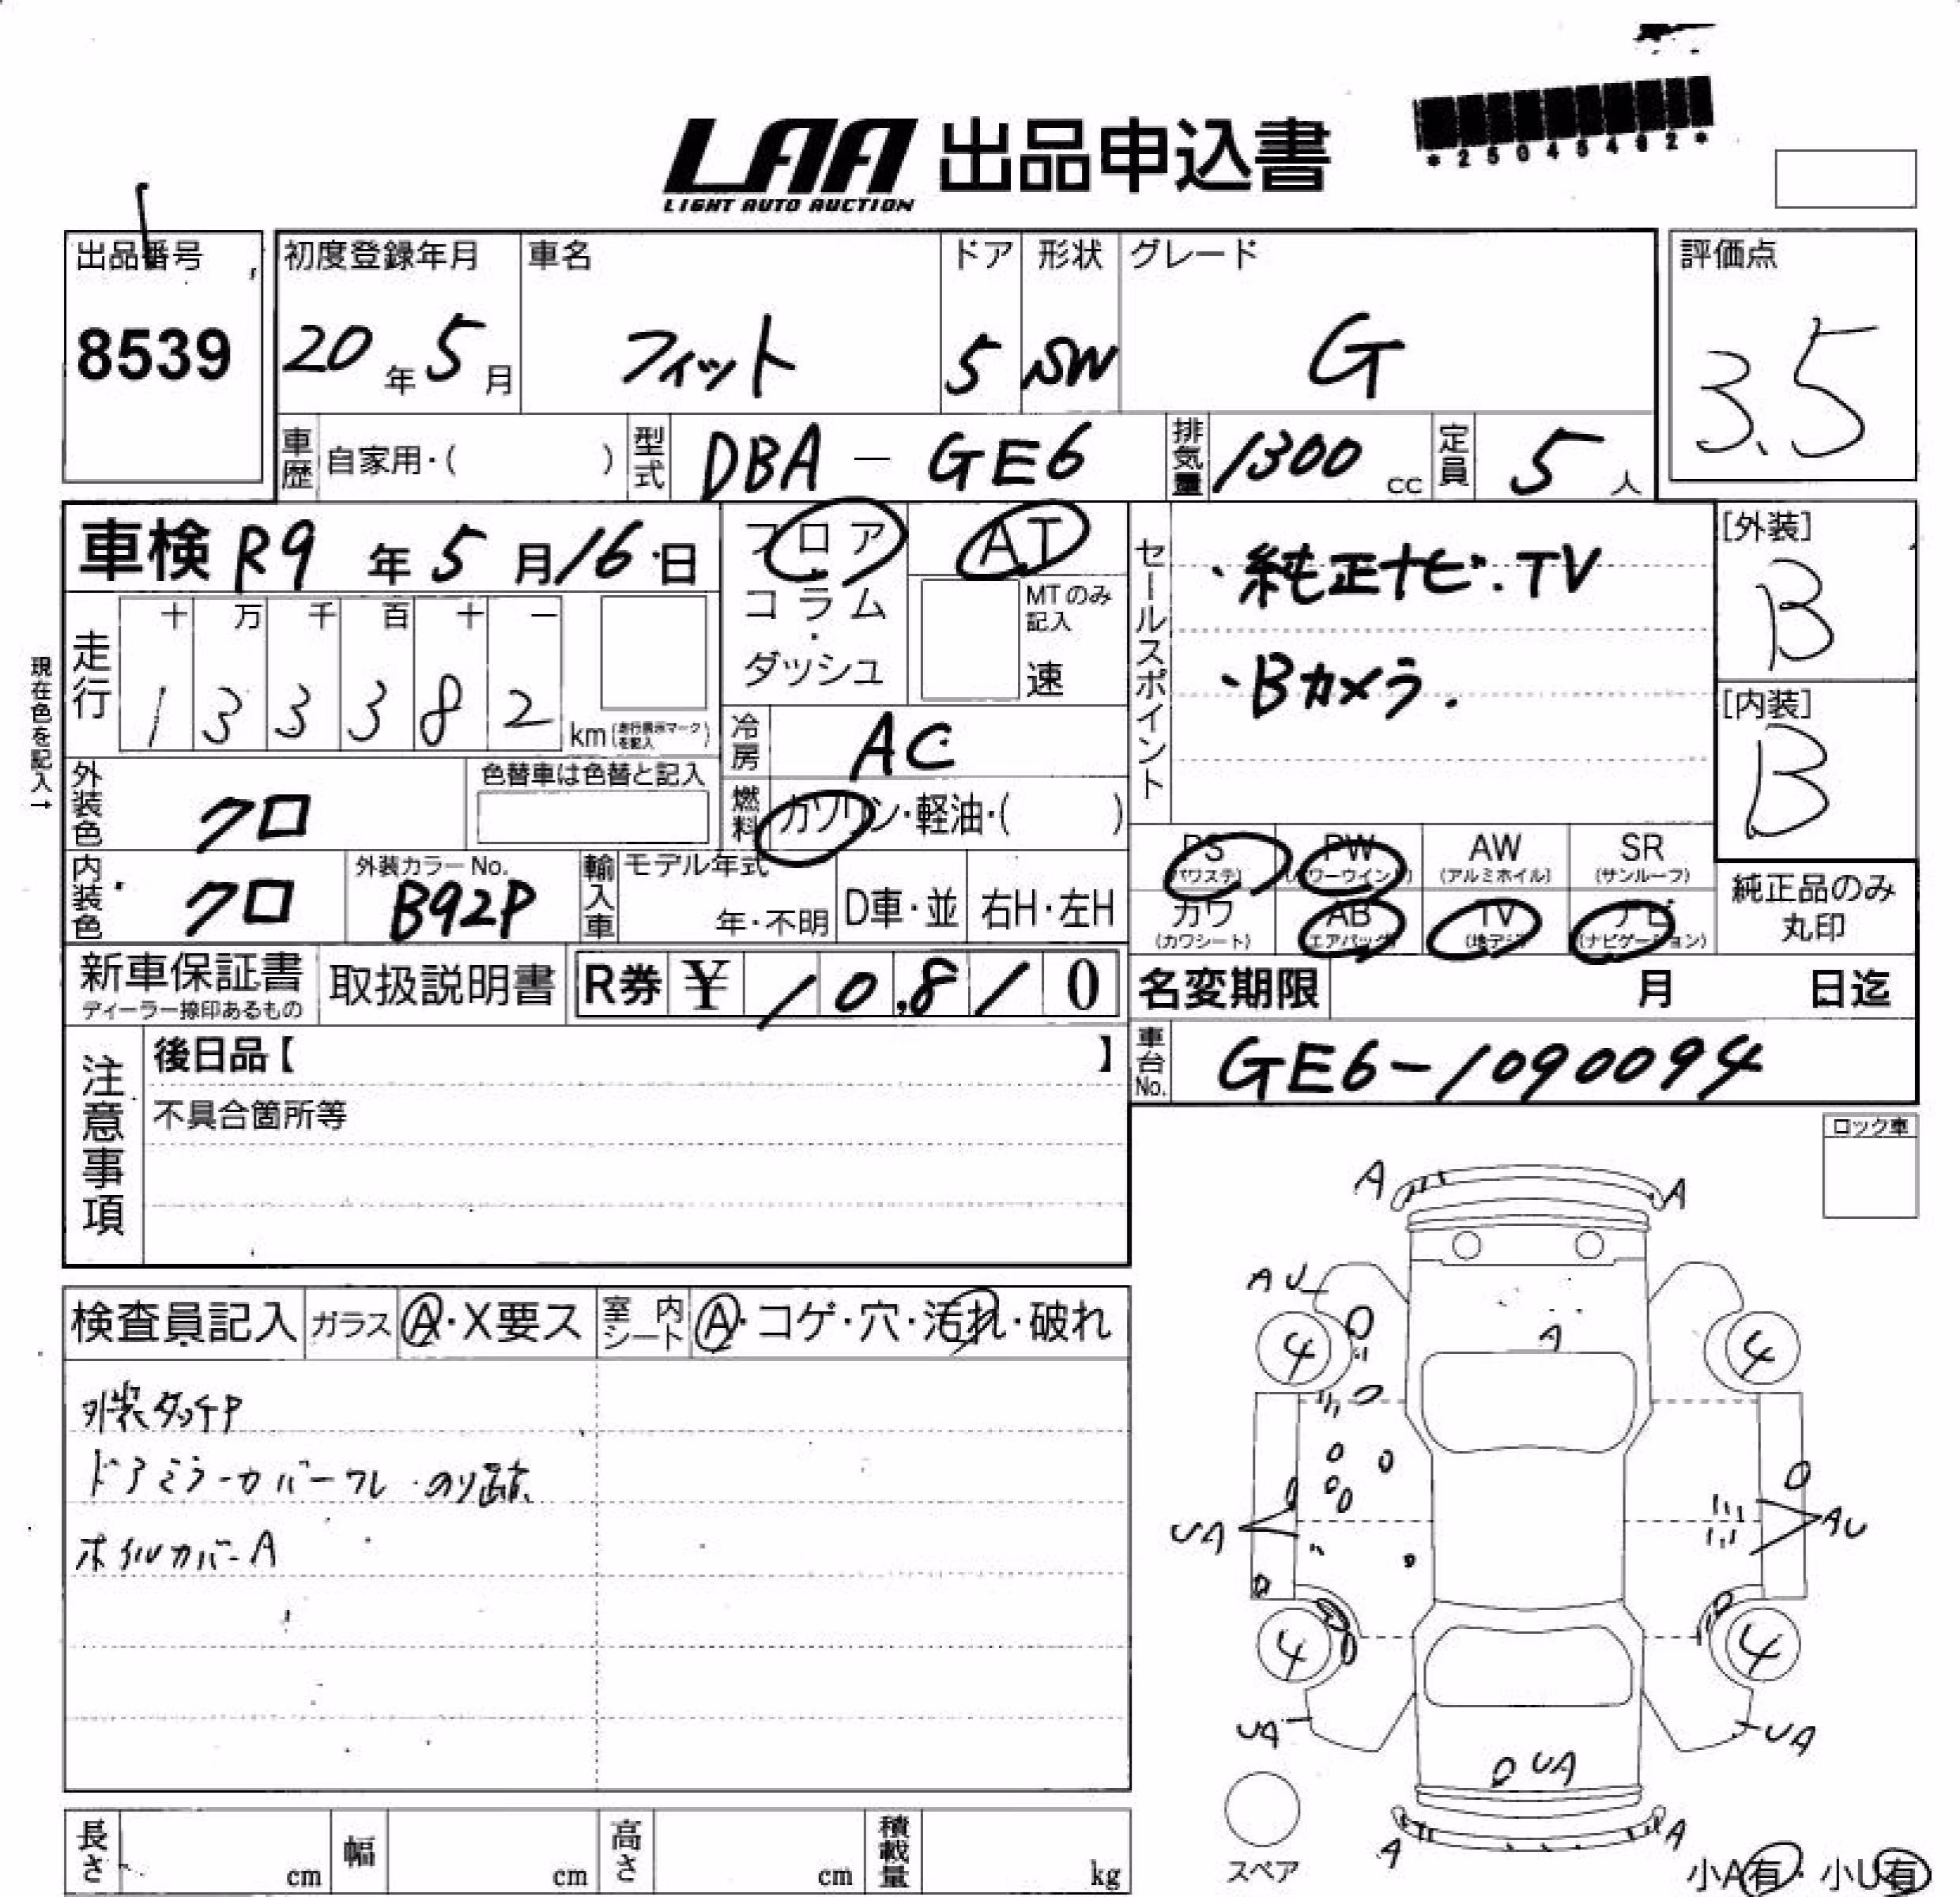 LAA 出品申込書
LIGHT AUTO AUCTION
*25045462*
出品番号 初度登録年月 車名 ドア 形状 グレード 評価点
8539 20年5月 フィット 5 SW G 3.5
車歴 自家用・( ) 型式 DBA - GE6 排気量 1300 cc 定員 5人
車検 R9年5月16日 フロア AT セールスポイント [外装]
・純正ナビ.TV B
コラム・ダッシュ MTのみ記入 速
現在色を記入→
走行 十 万 千 百 十 一
1 3 3 3 8 2 km (走行表示マークを記入)
・Bカメラ. [内装]
B
冷房 AC
外装色 クロ 色替車は色替と記入 燃料 ガソリン・軽油・( )
PS (パワステ) PW (パワーウインドウ) AW (アルミホイル) SR (サンルーフ) 純正品のみ丸印
内装色 クロ 外装カラーNo. B92P 輸入車 モデル年式 年・不明 D車・並 右H・左H
カワ (カワシート) AB (エアバッグ) TV (地デジ) ナビ (ナビゲーション)
新車保証書 ディーラー捺印あるもの 取扱説明書 R券 ¥ 10,810 名変期限 月 日迄
注意事項 後日品【 】 車台No. GE6-1090094
不具合箇所等
ロック車
検査員記入 ガラス A・X要ス 室内シート A・コゲ・穴・汚れ・破れ
外装タッチP
ドアミラーカバーワレ・のり跡
ホイルカバーA
A A
AU
A
4 4
UA AU
4 4
UA UA
UA
A A
スペア
小A有・小U有
長さ cm 幅 cm 高さ cm 積載量 kg